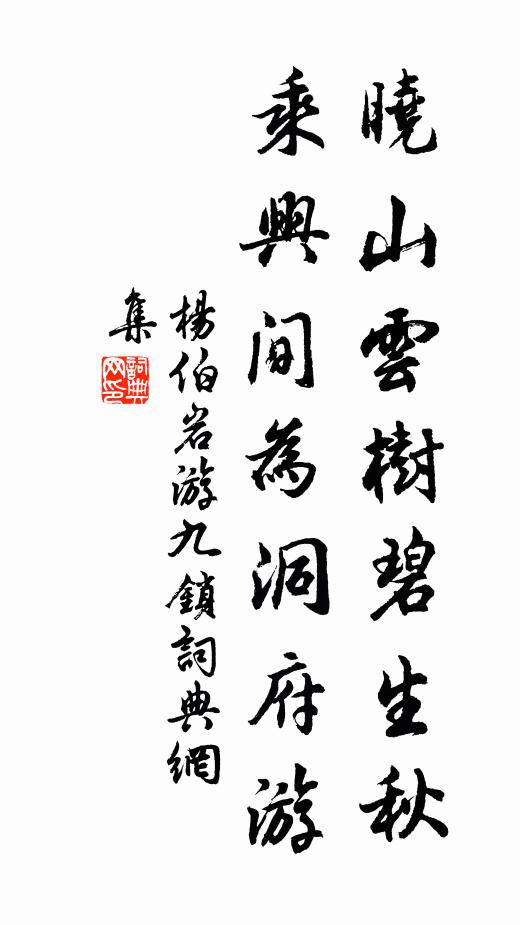 曉山雲樹碧生秋
乘興閒為洞府游
楊伯岩游九鎖詞典網
集
詞典網印